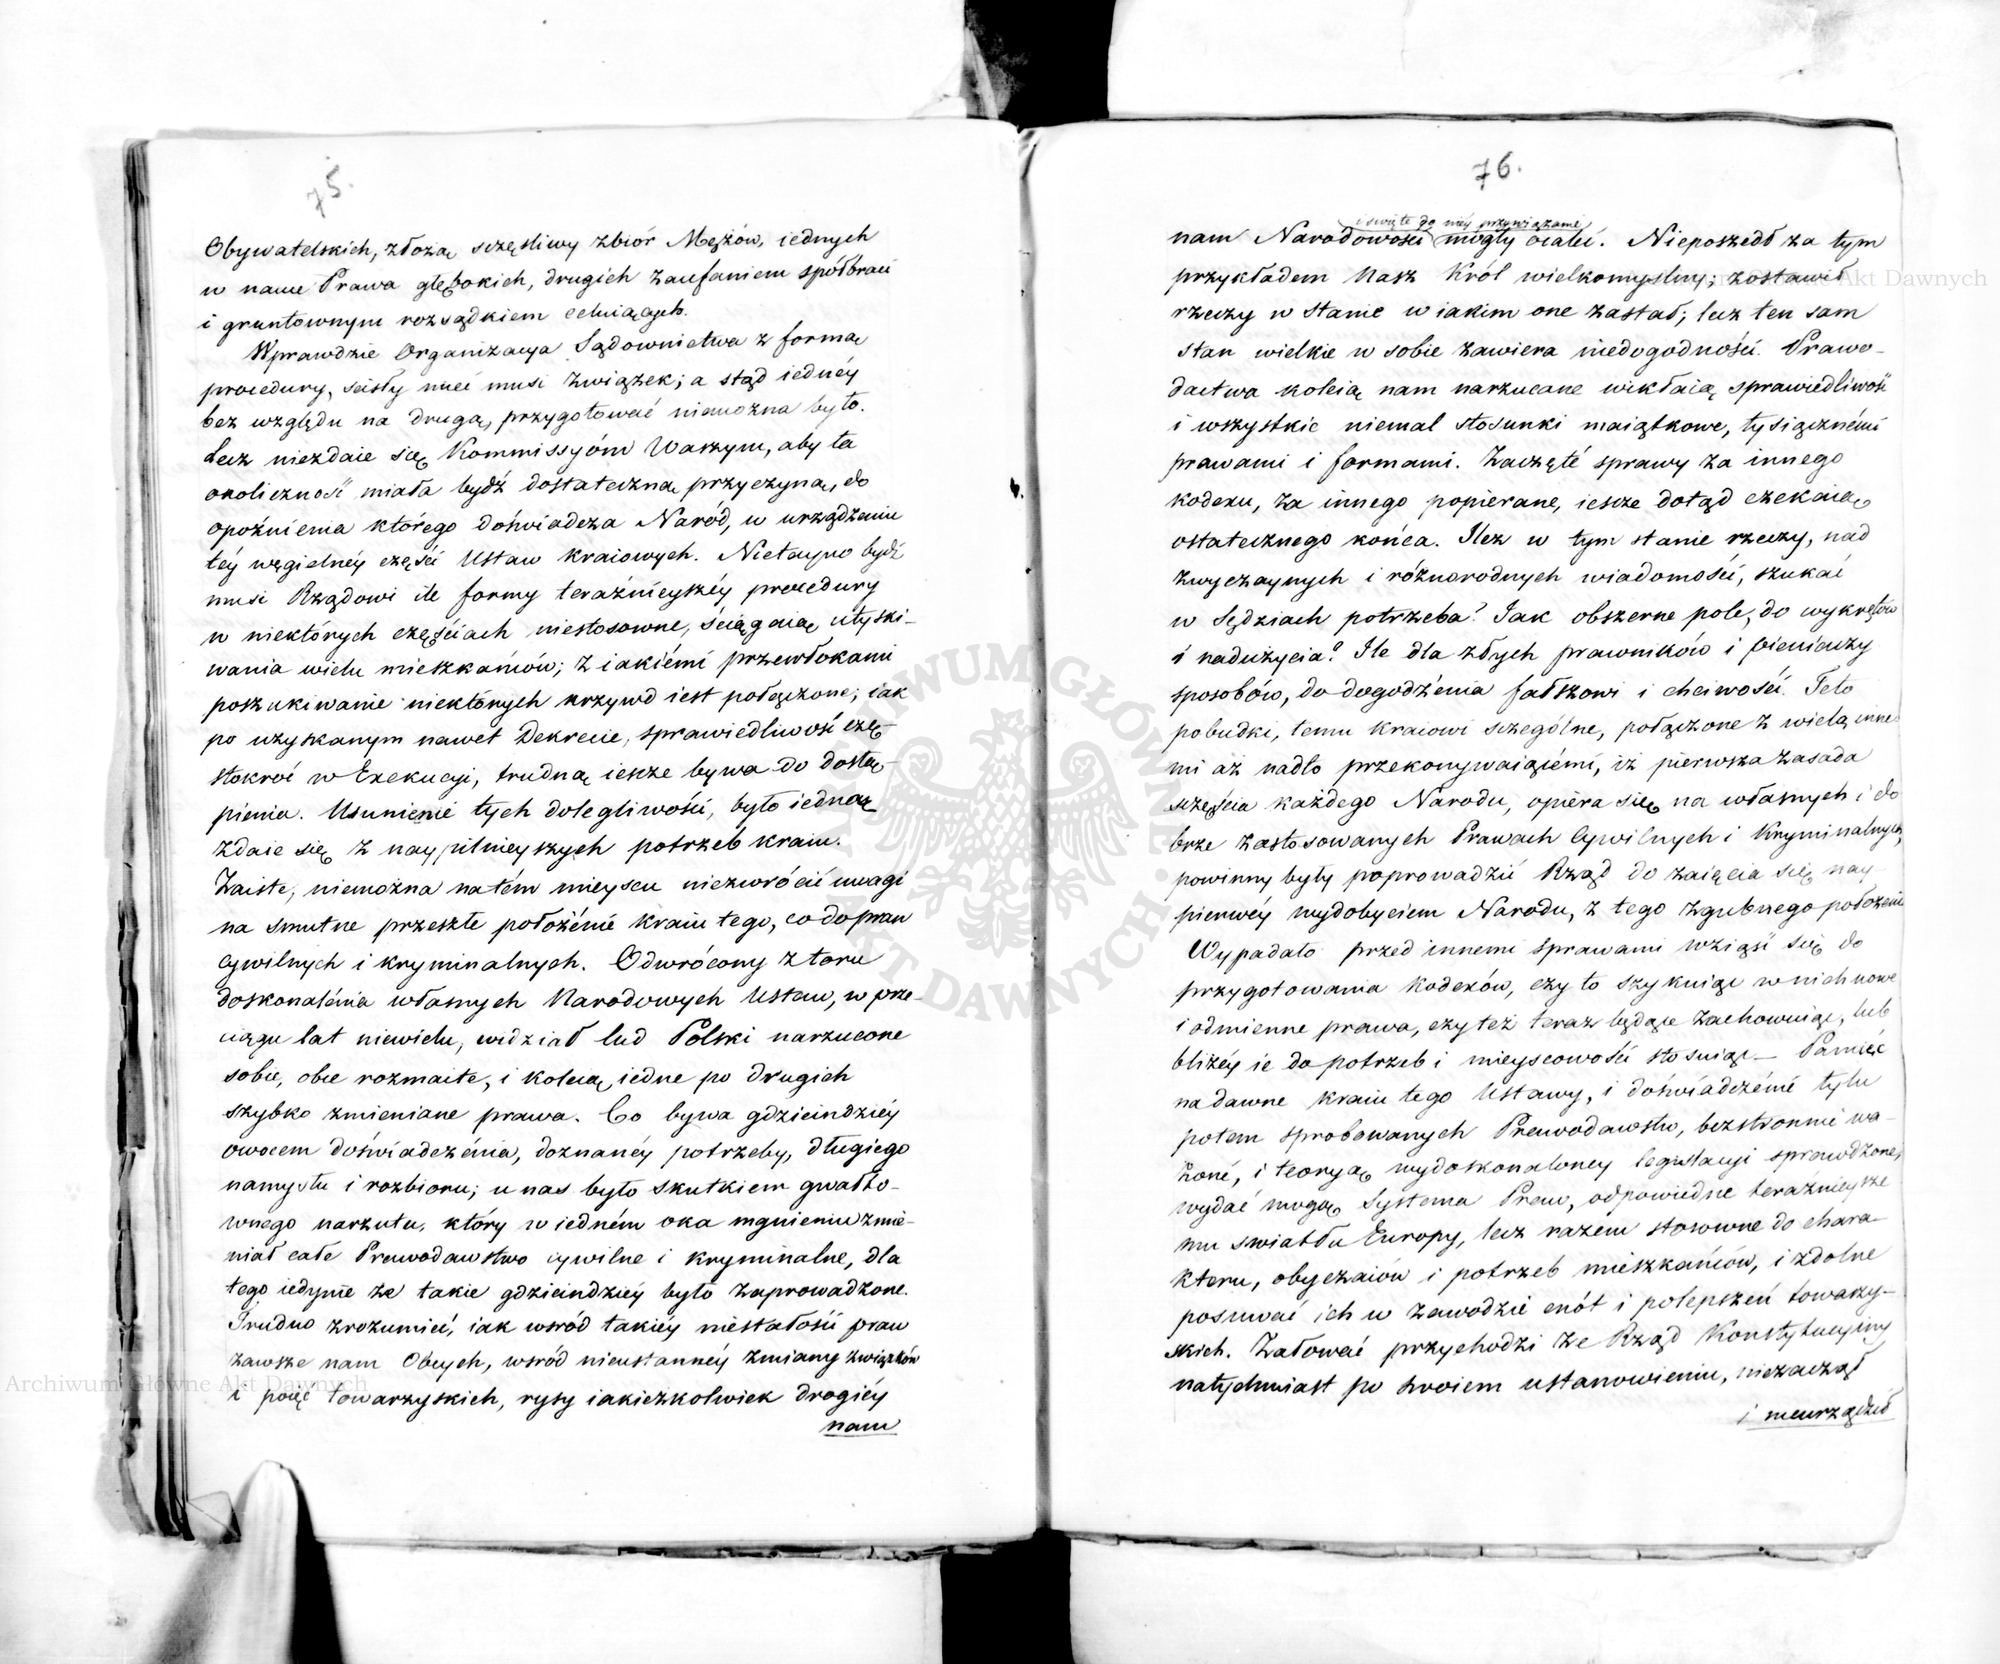 75.
Obywatelskich, złożą sczęsliwy zbiór Mężów, iednych
w nauce Prawa głębokich, drugich zaufaniem spółbraci
i gruntownym rozsądkiem celuiących.
Wprawdzie Organizacya Sądownictwa z formą
procedury, scisły mieć musi związek; a stąd iednéy
bez względu na drugą, przygotować niemożna było.
Lecz niezdaie się Kommissyóm Waszym, aby ta
okoliczność miała bydź dostateczną przyczyną, do
opoźnienia którego doświadcza Naród, w urządzeniu
téy węgielnéy części Ustaw kraiowych. Nietayno bydź
musi Rządowi ile formy teraźnieyszéy procedury
w niektórych częściach niestosowne, ściągaią utyski-
wania wielu mieszkańców; z iakiémi przewłokami
poszukiwanie niektórych krzywd iest połączone; iak
po uzyskanym nawet Dekrecie, sprawiedliwość czę-
stokroć w Exekucyi, trudną iescze bywa do dostą-
pienia. Usunienie tych dolegliwości, było iedną
zdaie się z naypilnieyszych potrzeb kraiu.
Zaiste, niemożna na tém mieyscu niezwrócić uwagi
na smutne przeszłe położénie kraiu tego, co do praw
cywilnych i kryminalnych. Odwrócony z toru
doskonalénia własnych Narodowych Ustaw, w prze-
ciągu lat niewielu, widział lud Polski narzucone
sobie, obce rozmaite, i koleią, iedne po drugich
szybko zmieniane prawa. Co bywa gdzieindziéy
owocem doświadczénia, doznanéy potrzeby, długiego
namysłu i rozbioru; u nas było skutkiem gwałto-
wnego narzutu, który w iedném oka mgnieniu zmie-
niał całe Prawodawstwo cywilne i kryminalne, dla
tego iedynie że takie gdzieindziéy było zaprowadzone.
Trudno zrozumieć, iak wsród takiéy niestałości praw
zawsze nam Obcych, wsród nieustannéy zmiany związków
i poięć towarzyskich, rysy iakieżkolwiek drogiéy
nam
76.
i święte do niéy przywiązanie
nam Narodowości mogły ocaleć. Nieposzedł za tym
przykładem Nasz Król wielkomyslny; zostawił
rzeczy w stanie w iakim one zastał; lecz ten sam
stan wielkie w sobie zawiera niedogodności. Prawo-
dactwa koleią nam narzucane wikłaią sprawiedliwość
i wszystkie niemal stosunki maiątkowe, tysiącznémi
prawami i formami. Zaczęté sprawy za innego
kodexu, za innego popierane, iescze dotąd czekaią
ostatecznego końca. Ileż w tym stanie rzeczy, nad
zwyczaynych i różnorodnych wiadomości, szukać
w Sędziach potrzeba? Jak obszerne pole, do wykrętów
i nadużycia? Ile dla złych prawników i pieniaczy
sposobów, do dogodzénia fałszowi i chciwości. Teto
pobudki, temu kraiowi sczególne, połączone z wielą inne
mi aż nadto przekonywaiącémi, iż pierwsza zasada
sczęścia każdego Narodu, opiéra się na własnych i do
brze zastosowanych Prawach Cywilnych i Kryminalnych,
powinny były poprowadzić Rząd do zaięcia się nay
pierwéy wydobyciem Narodu, z tego zgubnego położenia
Wypadało przed innemi sprawami wziąść się do
przygotowania Kodexów, czy to szykuiąc w nich nowe
i odmienne prawa, czy też teraz będące zachowuiąc, lub
bliżéy ie do potrzeb i mieyscowości stosuiąc — Pamięć
na dawne kraiu tego Ustawy, i doświadczénie tylu
potem sprobowanych Prawodawstw, bezstronnie wa-
żoné, i teoryą wydoskonaloney legislacyi sprawdzone,
wydać mogą Systema Praw, odpowiedne teraźnieysze
mu swiatłu Europy, lecz razem stosowne do chara-
kteru, obyczaiów i potrzeb mieszkańców, i zdolne
posuwać ich w zawodzie cnót i polepszeń towarzy-
skich. Żałować przychodzi że Rząd Konstytucyiny
natychmiast po swoiem ustanowieniu, niezaczął
i nieurządził
Archiwum Główne Akt Dawnych